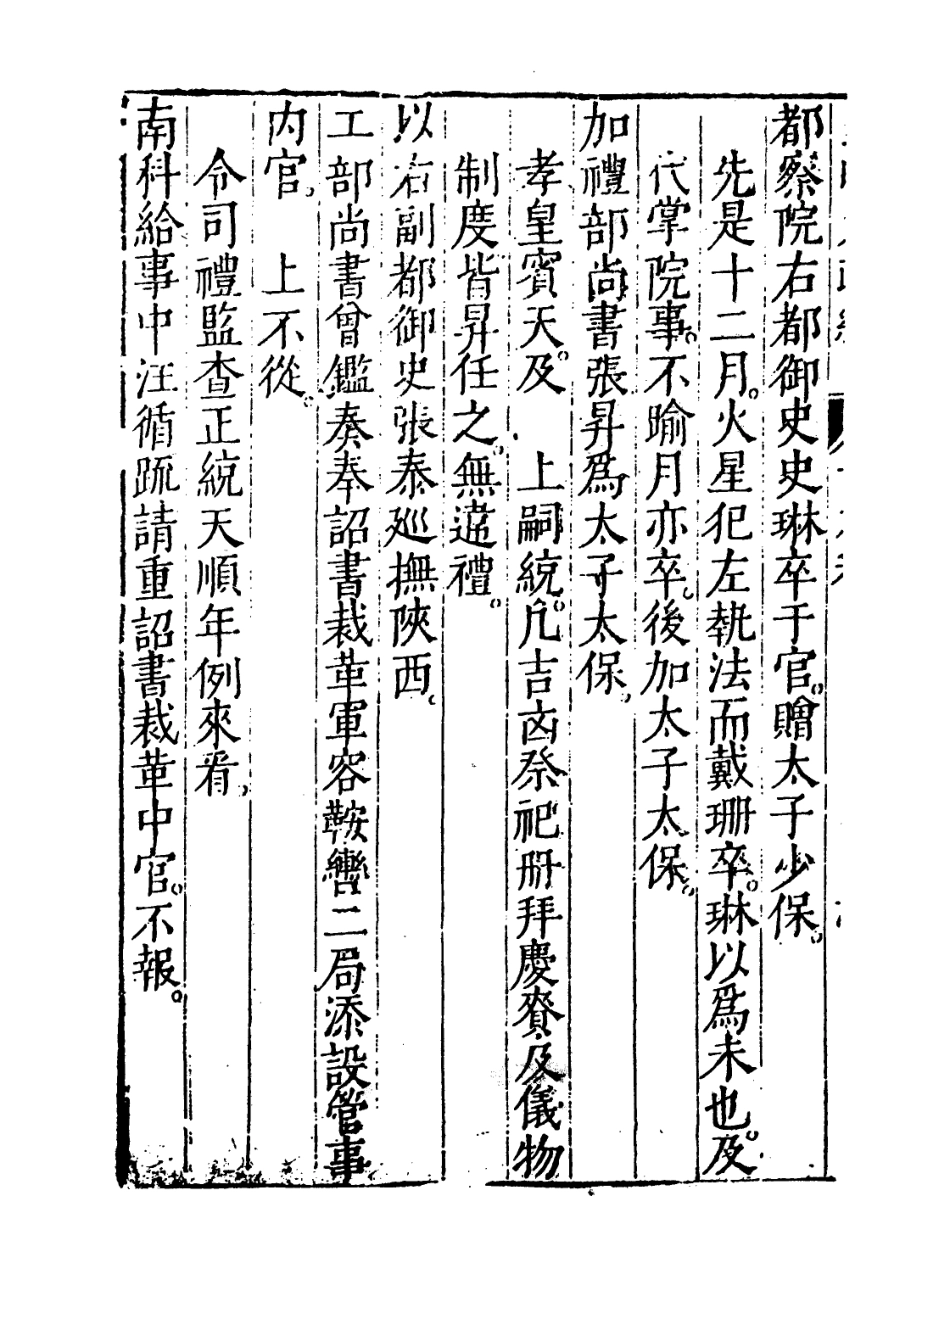 都察院右都御史史琳卒于官。贈太子少保。
先是十二月。火星犯左執法而戴珊卒。琳以爲未也。及
代掌院事。不踰月亦卒。後加太子太保。
加禮部尚書張昇爲太子太保。
孝皇賓天。及　上嗣統。凡吉凶祭祀册拜慶賚及儀物
制度皆昇任之。無違禮。
以右副都御史張泰廵撫陝西。
工部尚書曾鑑奏奉詔書裁革軍容鞍轡二局添設管事
内官。　上不從。
令司禮監查正統天順年例來看。
南科給事中汪循䟽請重詔書裁革中官。不報。